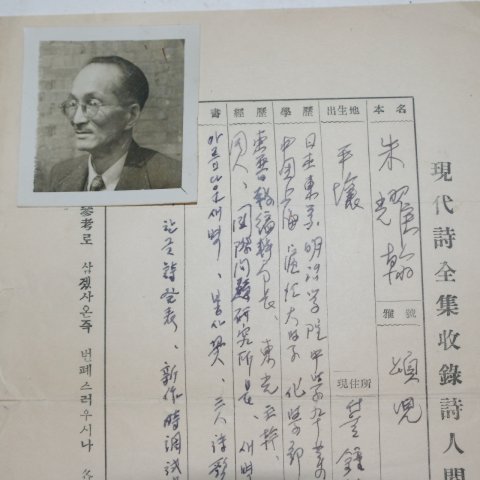 現代詩全集收錄詩人間
本名 朱耀翰 雅號 頌兒
出生地 平壤 現住所
學歷 日本東京明治学院中学
中国上海滬江大学 化学部
經歷 東亜日報編輯局長、東光主幹、
同人、国際問題研究所長、새벽
書 아름다운새벽、봉사꽃、三人詩歌
한글詩発表、新作時調試
參考로 삼겠사온즉 번폐스러우시나 各